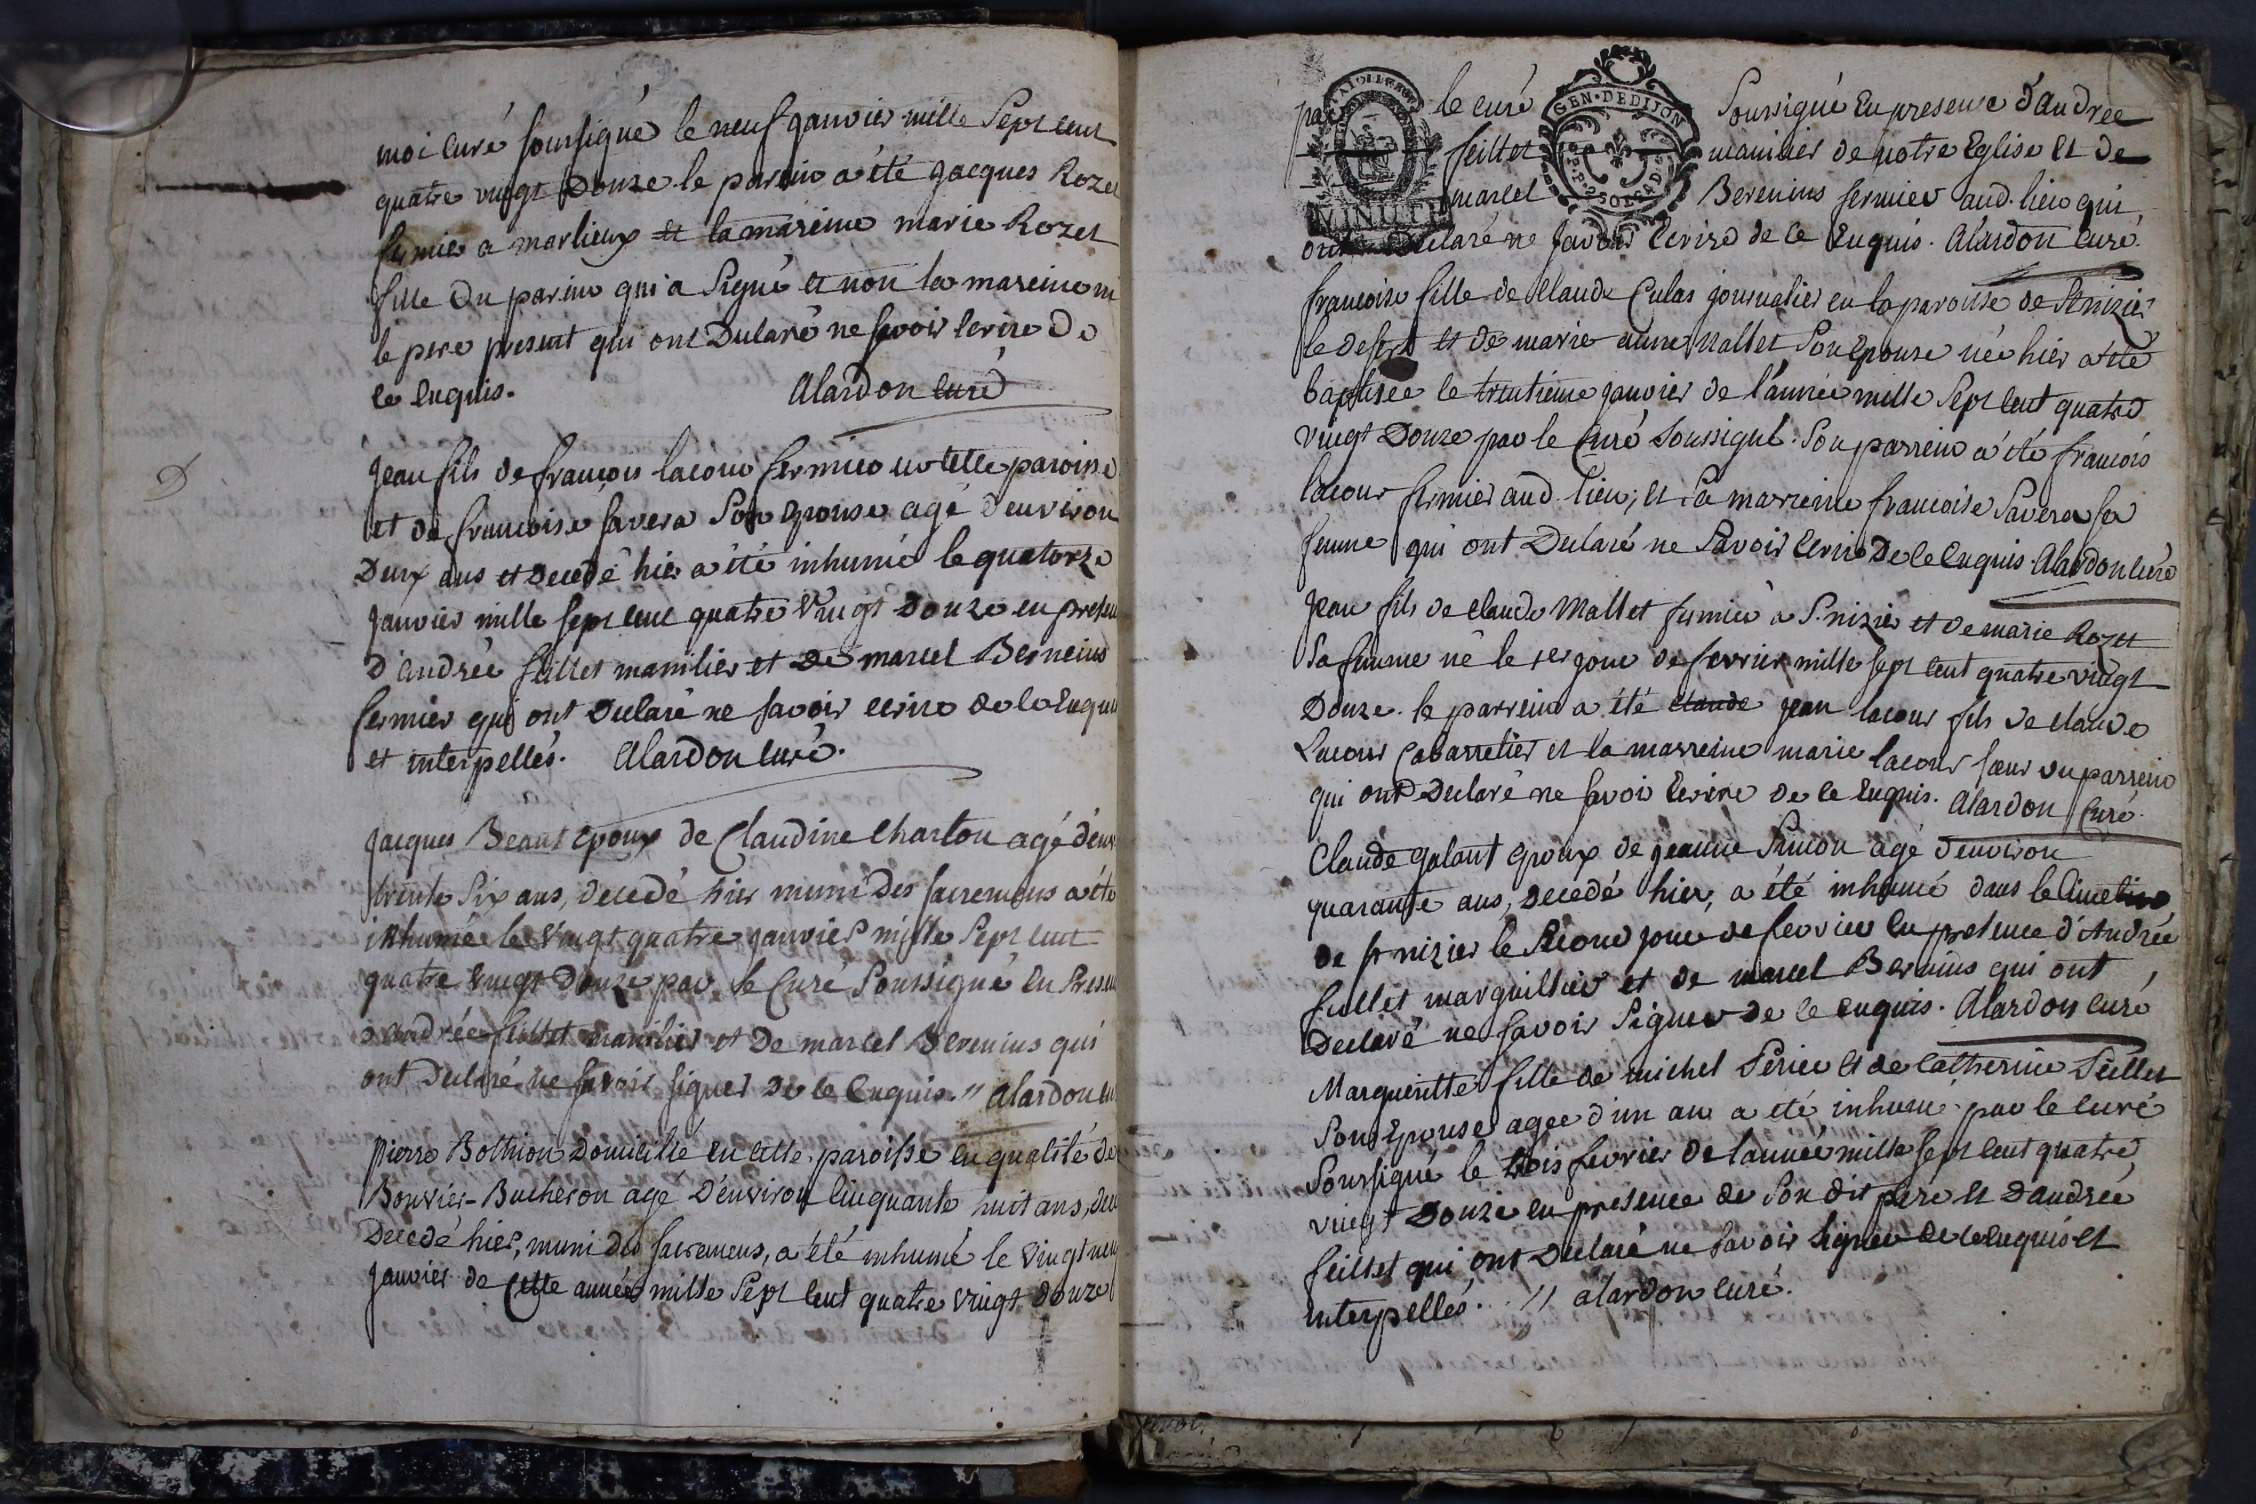 moi curé soussigné le neuf janvier mille Sept cent
quatre vingt Douze le parein a été jacques Rozet
fermier a marlieux et la mareine marie Rozet
fille Du parein qui a Signé et non la mareine ni
le pere present qui ont Declaré ne savoir ecrire De
ce enquis. Alardon curé
jean fils de françois lacour fermier en cette paroisse
et de françoise savera Son Epouse agé d'environ
Deux ans et Decedé hier a été inhumé le quatorze
janvier mille sept cent quatre Vingt Douze en presen
D'andrée feillet manilier et De marcel Berneins
fermier qui ont Declaré ne savoir ecrire de ce enquis
et interpellés. Alardon curé.
D
jacques Beaut Epoux de Claudine Charton agé d'env
trente Six ans, decedé hier muni des sacremens a été
inhumé le Vingt quatre janvier mille Sept cent
quatre Vingt Douze par le Curé Soussigné en Presen
d'andrée feillet manilier et De marcel Bereins qui
ont Declaré ne savoir signer De ce Enquis. // Alardon cu
Pierre Bothion Domicilié en cette paroisse en qualité de
Bouvier-Bucheron agé D'environ Cinquante huit ans,
Decedé hier, muni des sacremens, a été inhumé le Vingt neu
janvier de Cette année mille Sept Cent quatre Vingt Douze
par le curé Soussigné En presence d'andrée
feillet manilier de notre Eglise Et de
marcel Bereins fermier aud. lieu qui
ont Declaré ne savoir Ecrire de ce Enquis. Alardon Curé.
GEN. DE DIJON
MINUTE
francoise fille de Claude Culas journalier en la paroisse de St nizier
le desert et de marie anne Mallet Son Epouse née hier a été
baptisée le trentieme janvier de l'année mille Sept Cent quatre
vingt Douze par le Curé Soussigné. Son parrein a été francois
lacour fermier aud. lieu; et sa marreine francoise Savera sa
femme qui ont Declaré ne Savoir Ecrire De ce Enquis. Alardon curé
Jean fils de Claude Mallet fermier à S. nizier et de marie Rozet
Sa femme né le 1er jour de fevrier mille sept cent quatre vingt
Douze. le parrein a été claude jean lacour fils de claude
Lacour Cabarretier et la marreine marie lacour sœur du parrein
qui ont Declaré ne savoir Ecrire de ce Enquis. Alardon Curé.
Claude galant Epoux de jeanne Simon agé d'environ
quarante ans, Decedé hier, a été inhumé dans le Cimetiere
de st nizier le Second jour de fevrier en presence d'Andrée
feillet marguillier et de marcel Bereins qui ont
Declaré ne savoir Signer de ce enquis. Alardon curé
Margueritte fille de michel Périer et de Catherine feillet
Son Epouse agee d'un an a été inhumé par le curé
Soussigné le trois fevrier de l'année mille sept cent quatre
vingt Douze en presence de Son dit pere et D'andrée
feillet qui ont Declaré ne Savoir Signer de ce enquis et
interpellés. // alardon curé.